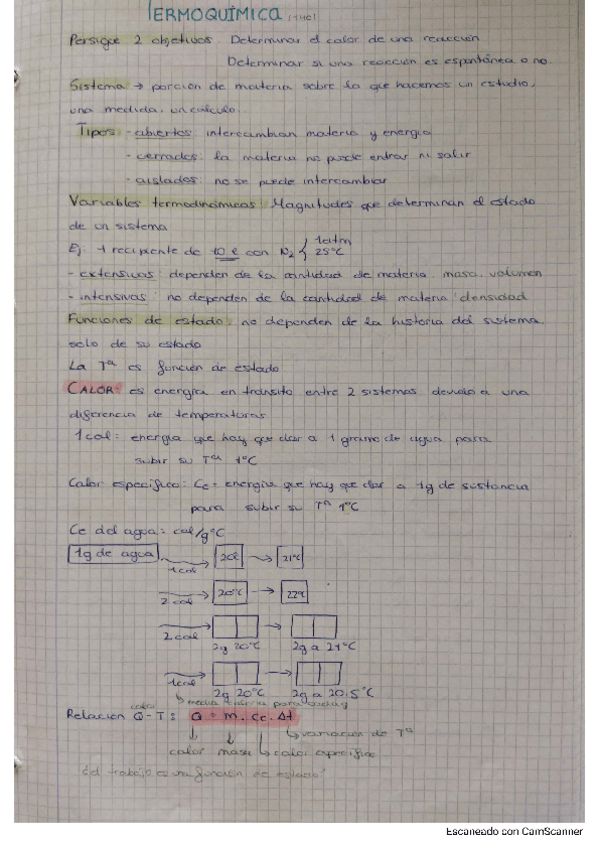 TERMOQUÍMICA
Persigue 2 objetivos Determinar el calor de una reacción
Determinar si una reacción es espontánea o no
Sistema → porción de materia sobre la que hacemos un estudio,
una medida, un cálculo.
Tipos - abiertos: intercambian materia y energía
- cerrados: la materia no puede entrar ni salir
- aislados: no se puede intercambiar
Variables termodinámicas: Magnitudes que determinan el estado
de un sistema
Ej: 1 recipiente de 10 l con N₂ { 1 atm
25°C
- extensivas: dependen de la cantidad de materia: masa, volumen
- intensivas: no dependen de la cantidad de materia: densidad
Funciones de estado: no dependen de la historia del sistema
solo de su estado
La Tª es función de estado
CALOR: es energía en tránsito entre 2 sistemas debido a una
diferencia de temperaturas
1 cal: energía que hay que dar a 1 gramo de agua para
subir su Tª 1°C
Calor específico: Ce = energía que hay que dar a 1g de sustancia
para subir su Tª 1°C
Ce del agua: cal/g°C
1g de agua → 20°C → 21°C
1 cal
→ 20°C → 22°C
2 cal
2 cal
2g 20°C 2g a 21°C
1 cal
2g 20°C 2g a 20.5°C
calor ↳ media caloría para cada g
Relación Q-T: Q = m · Ce · Δt
↳ variación de Tª
calor masa ↳ calor específico
¿el trabajo es una función de estado?
Escaneado con CamScanner